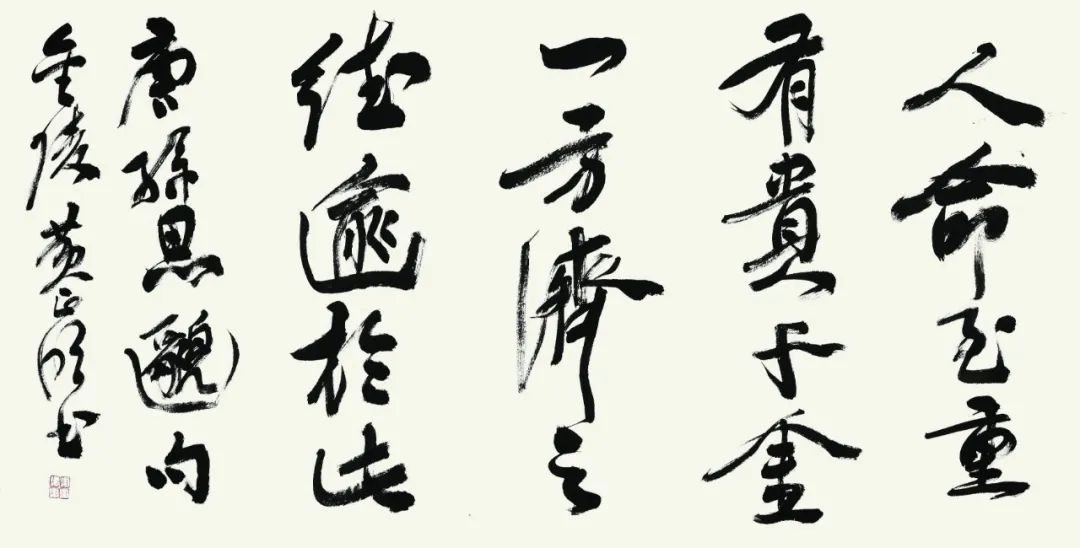 人命至重
有貴千金
一方濟之
德逾於此
唐孫思邈句
金陵黄正明书